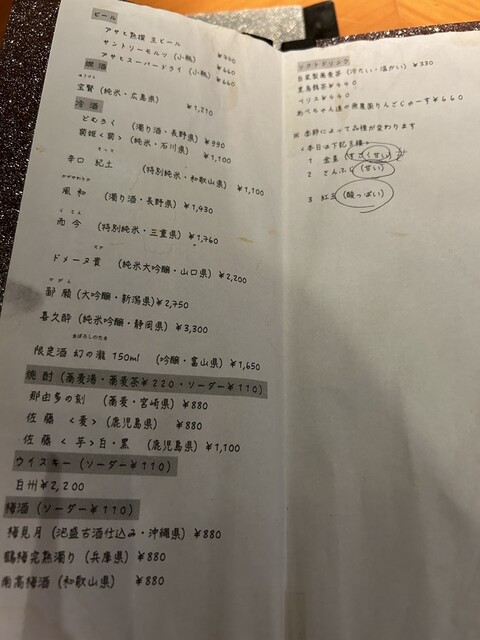 ビール
アサヒ熟撰 生ビール ¥770
サントリーモルツ (小瓶) ¥660
アサヒスーパードライ (小瓶) ¥660
燗酒
宝賢 (純米・広島県) ¥1,210
冷酒
どむろく (濁り酒・長野県) ¥990
菊姫＜菊＞ (純米・石川県) ¥1,100
辛口 紀土 (特別純米・和歌山県) ¥1,100
風和 (濁り酒・長野県) ¥1,430
而今 (特別純米・三重県) ¥1,760
ドメーヌ貴 (純米大吟醸・山口県) ¥2,200
鄙願 (大吟醸・新潟県) ¥2,750
喜久酔 (純米吟醸・静岡県) ¥3,300
まぼろしのたき
限定酒 幻の瀧 150ml (吟醸・富山県) ¥1,650
焼酎 (蕎麦湯・蕎麦茶¥220・ソーダー¥110)
那由多の刻 (蕎麦・宮崎県) ¥880
佐藤 ＜麦＞ (鹿児島県) ¥880
佐藤 ＜芋＞白・黒 (鹿児島県) ¥1,100
ウイスキー (ソーダー¥110)
白州¥2,200
梅酒 (ソーダー¥110)
梅見月 (泡盛古酒仕込み・沖縄県) ¥880
鶴梅完熟濁り (兵庫県) ¥880
南高梅酒 (和歌山県) ¥880
ソフトドリンク
自家製蕎麦茶 (冷たい・温かい) ¥330
黒烏龍茶¥440
ペリエ¥440
あべちゃん達の無農薬りんごじゅーす¥660
※ 季節によって品種が変わります
＜本日は下記3種＞
1 (すごく甘い)
2 (甘い)
3 紅玉 (酸っぱい)